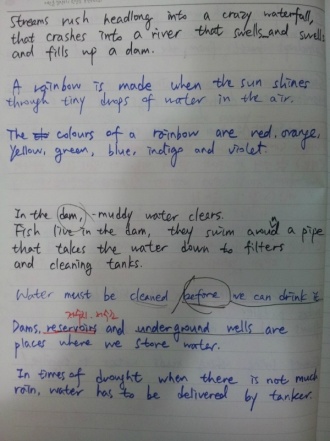 Streams rush headlong into a crazy waterfall,
that crashes into a river that swells and swells
and fills up a dam.
A rainbow is made when the sun shines
through tiny drops of water in the air.
The colours of a rainbow are red, orange,
Yellow, green, blue, indigo and violet.
In the dam, muddy water clears.
Fish live in the dam, they swim around a pipe
that takes the water down to filters
and cleaning tanks.
Water must be cleaned before we can drink it
Dams, reservoirs and underground wells are
places where we store water.
In times of drought when there is not much
rain, water has to be delivered by tanker.